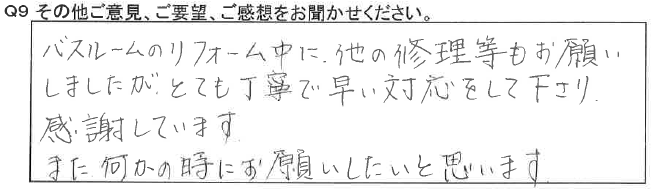 Q9 その他ご意見、ご要望、ご感想をお聞かせください。
バスルームのリフォーム中に、他の修理等もお願い
しましたが、とても丁寧で早い対応をして下さり、
感謝しています
また何かの時にお願いしたいと思います